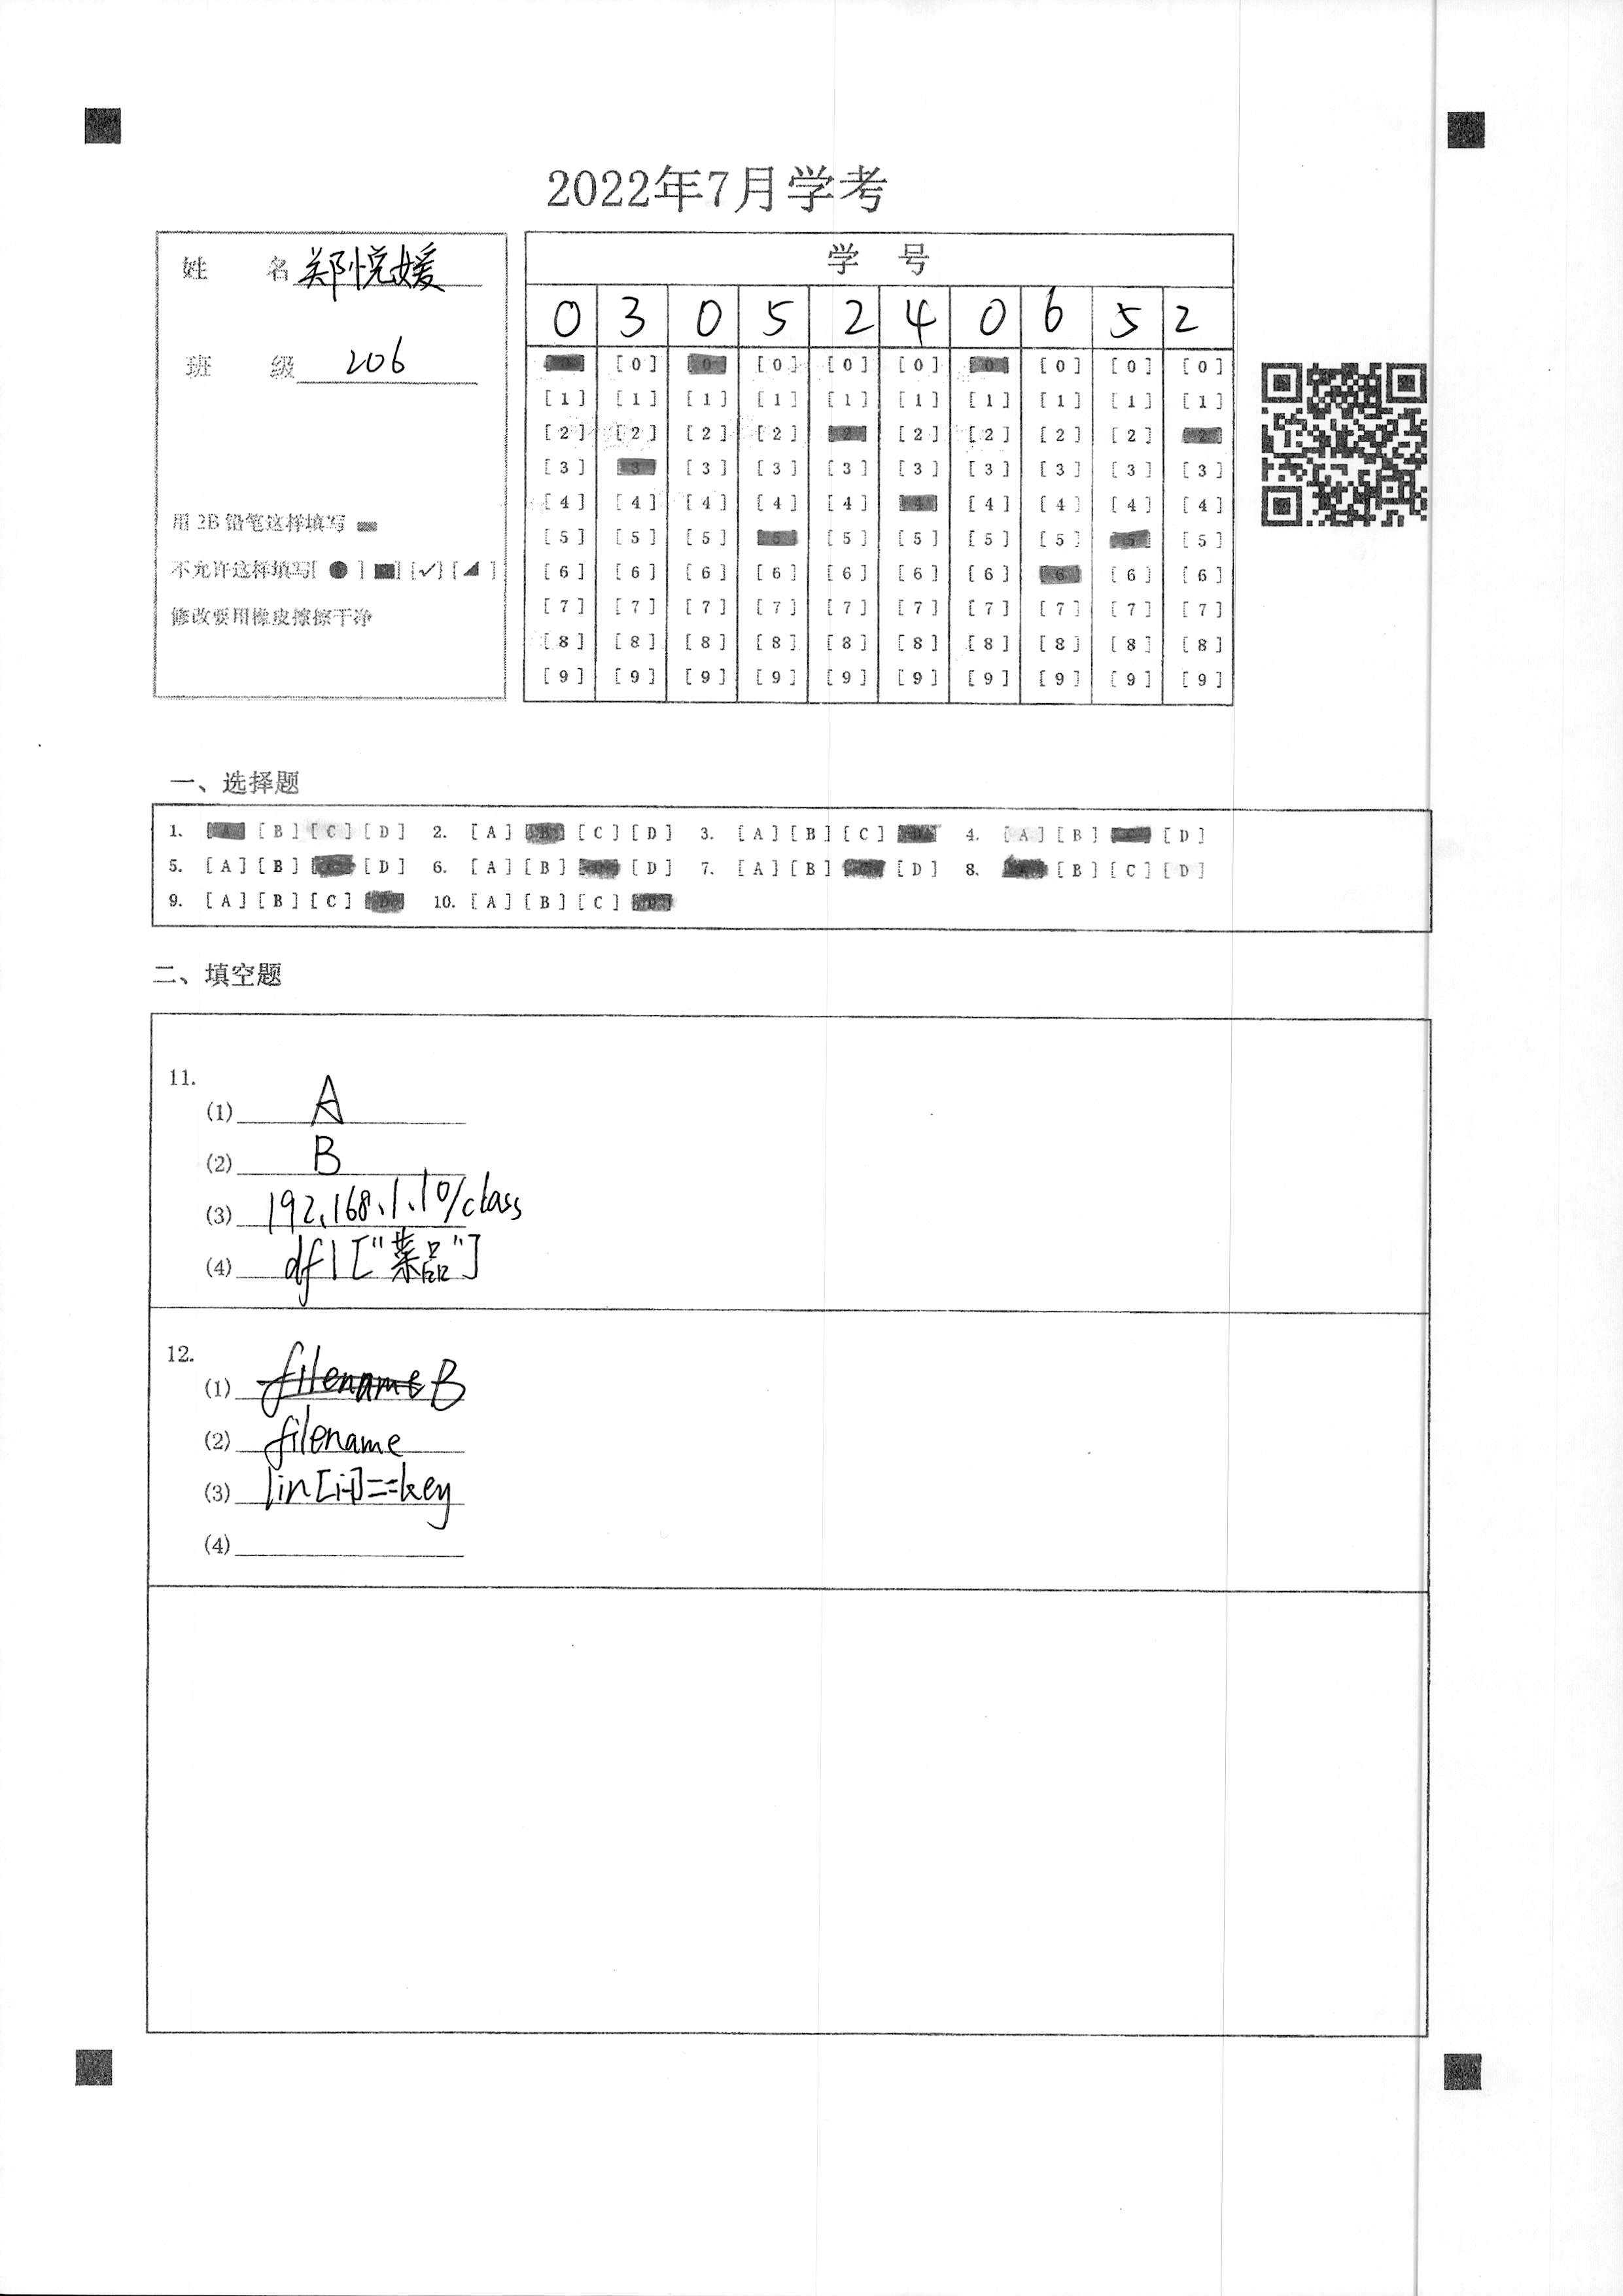 2022年7月学考
姓 名 郑悦媛
班 级 206
用 2B 铅笔这样填写
不允许这样填写[ ● ] [✓] [ ]
修改要用橡皮擦擦干净
学 号
0 3 0 5 2 4 0 6 5 2
[0] [0] [0] [0] [0] [0] [0] [0] [0] [0]
[1] [1] [1] [1] [1] [1] [1] [1] [1] [1]
[2] [2] [2] [2] [2] [2] [2] [2] [2] [2]
[3] [3] [3] [3] [3] [3] [3] [3] [3] [3]
[4] [4] [4] [4] [4] [4] [4] [4] [4] [4]
[5] [5] [5] [5] [5] [5] [5] [5] [5] [5]
[6] [6] [6] [6] [6] [6] [6] [6] [6] [6]
[7] [7] [7] [7] [7] [7] [7] [7] [7] [7]
[8] [8] [8] [8] [8] [8] [8] [8] [8] [8]
[9] [9] [9] [9] [9] [9] [9] [9] [9] [9]
一、选择题
1. [A] [B] [C] [D] 2. [A] [B] [C] [D] 3. [A] [B] [C] [D] 4. [A] [B] [C] [D]
5. [A] [B] [C] [D] 6. [A] [B] [C] [D] 7. [A] [B] [C] [D] 8. [A] [B] [C] [D]
9. [A] [B] [C] [D] 10. [A] [B] [C] [D]
二、填空题
11.
(1) A
(2) B
(3) 192.168.1.10/class
(4) df1["菜品"]
12.
(1) filename B
(2) filename
(3) lin[i-1]==key
(4)